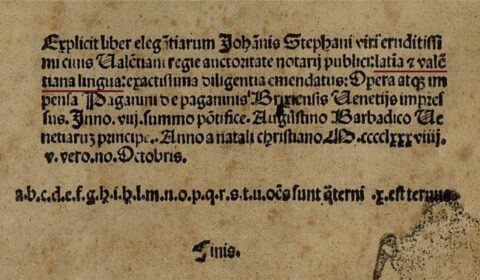 Explicit liber elegãtiarum Johãnis Stephani viri eruditissi
mi civis Valẽtiani regie auctoritate notarij publici: latĩa ⁊ valẽ
tiana lingua: exactissima diligentia emendatus: Opera atq̃ im
pensa Paganini de paganinis Brixiensis Uenetijs impres
sus. Inno. viij. summo põtifice. Augustino Barbadico Ue
netiarum principe. Anno a natali christiano M. ccccl xxx viiij.
v. vero. no. Octobris.
a.b.c.d.e.f.g.h.i.k.l.m.n.o.p.q.r.s.t.u. oẽs sunt q̃terni .x. est ternus.
Finis.